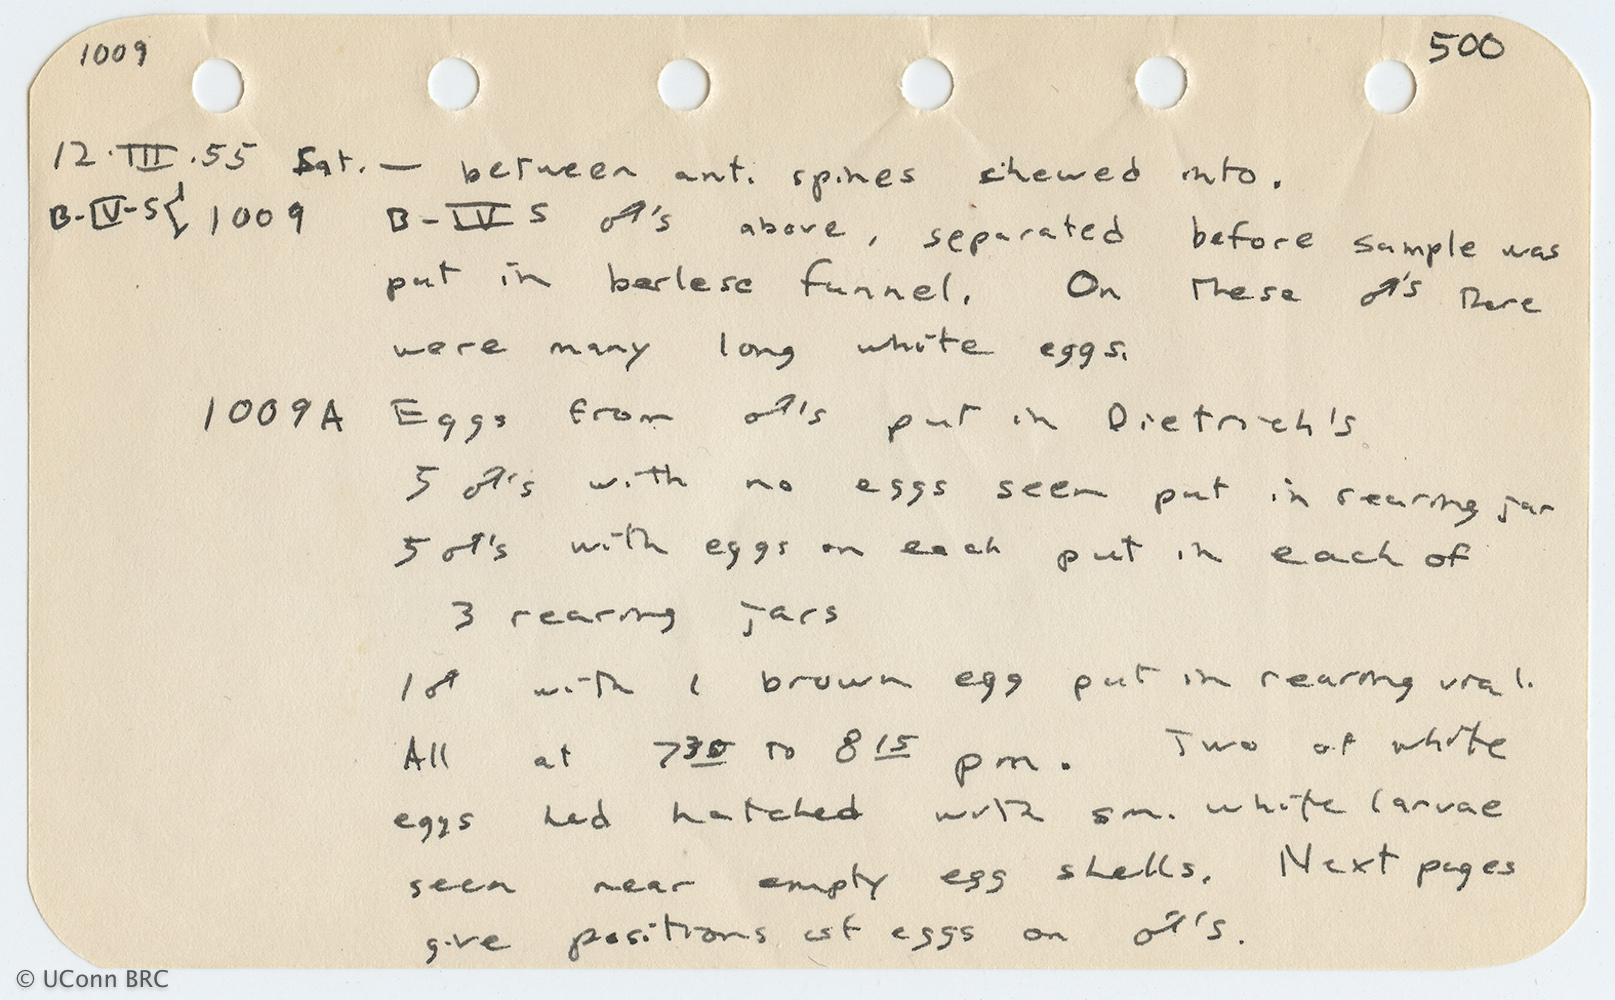 1009 500
12·III·55 Sat. — between ant. spines chewed into.
B-IV-S{ 1009 B-IV S ♂'s above, separated before sample was
put in berlese funnel. On these ♂'s there
were many long white eggs.
1009A Eggs from ♂'s put in Dietrich's
5 ♂'s with no eggs seen put in rearing jar
5 ♂'s with eggs on each put in each of
3 rearing jars
1♂ with 1 brown egg put in rearing vial.
All at 7³⁰ to 8¹⁵ pm. Two of white
eggs had hatched with sm. white larvae
seen near empty egg shells. Next pages
give positions of eggs on ♂'s.
© UConn BRC